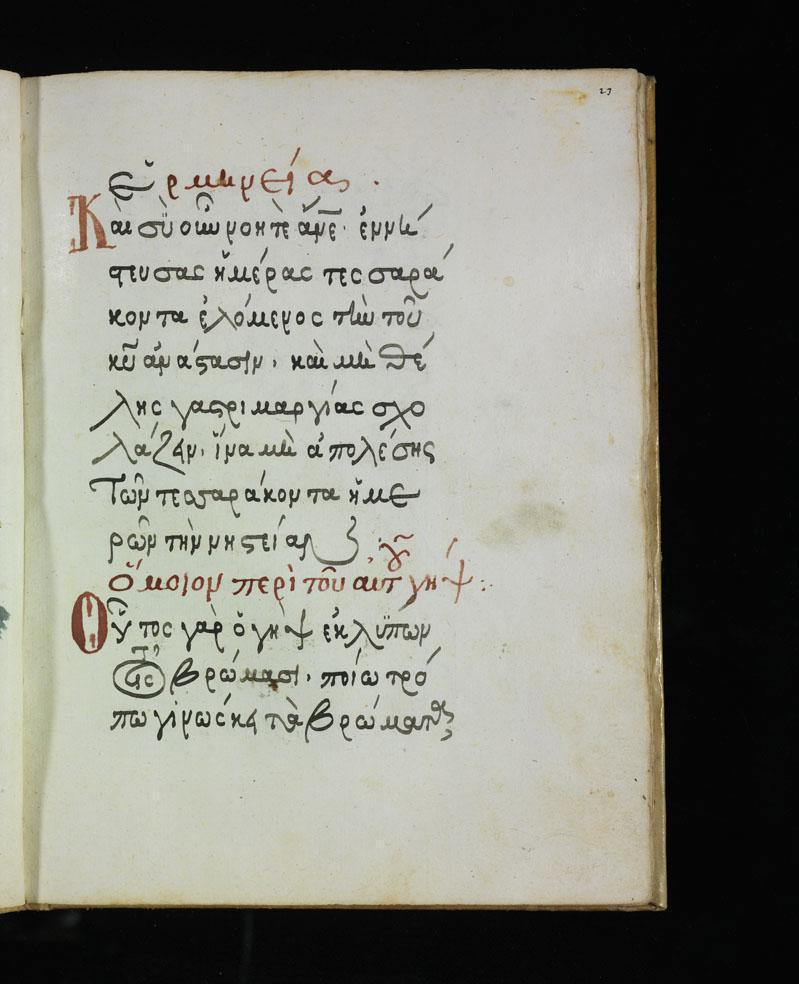 23
ἑρμηνείας .
Καὶ σὺ οὖν νοητὲ ἄνε· ἐννή
στευσας ἡμέρας τεσσαρά
κοντα ἑλόμενος τὴν τοῦ
κῦ ἀνάστασιν· καὶ μὴ θέ
λης γαστριμαργίας σχο
λάζειν· ἵνα μὴ ἀπολέσης
Τῶν τεσσαράκοντα ἡμε
ρῶν τὴν νηστείαν
Ὅμοιον περὶ τοῦ αὐτ γὴψ
Οὗτος γὰρ ὁ γὴψ ἐκλύπων
βρώμασι· ποίω τρό
πω γινώσκει τὰ βρώματα